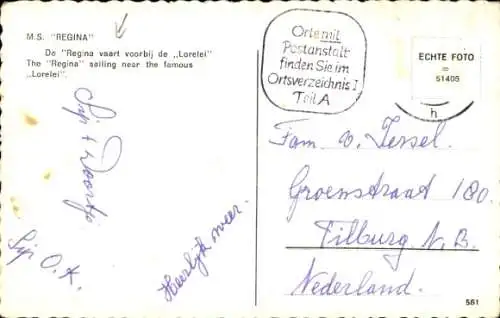 M.S. "REGINA"
De "Regina vaart voorbij de „Lorelei"
The "Regina" sailing near the famous
„Lorelei".
Orte mit
Postanstalt
finden Sie im
Ortsverzeichnis I
Teil A
ECHTE FOTO
51405
h
Fam. v. Tessel.
Groenstraat 180.
Tilburg N.B.
Nederland.
Heerlijk weer.
O.K.
561